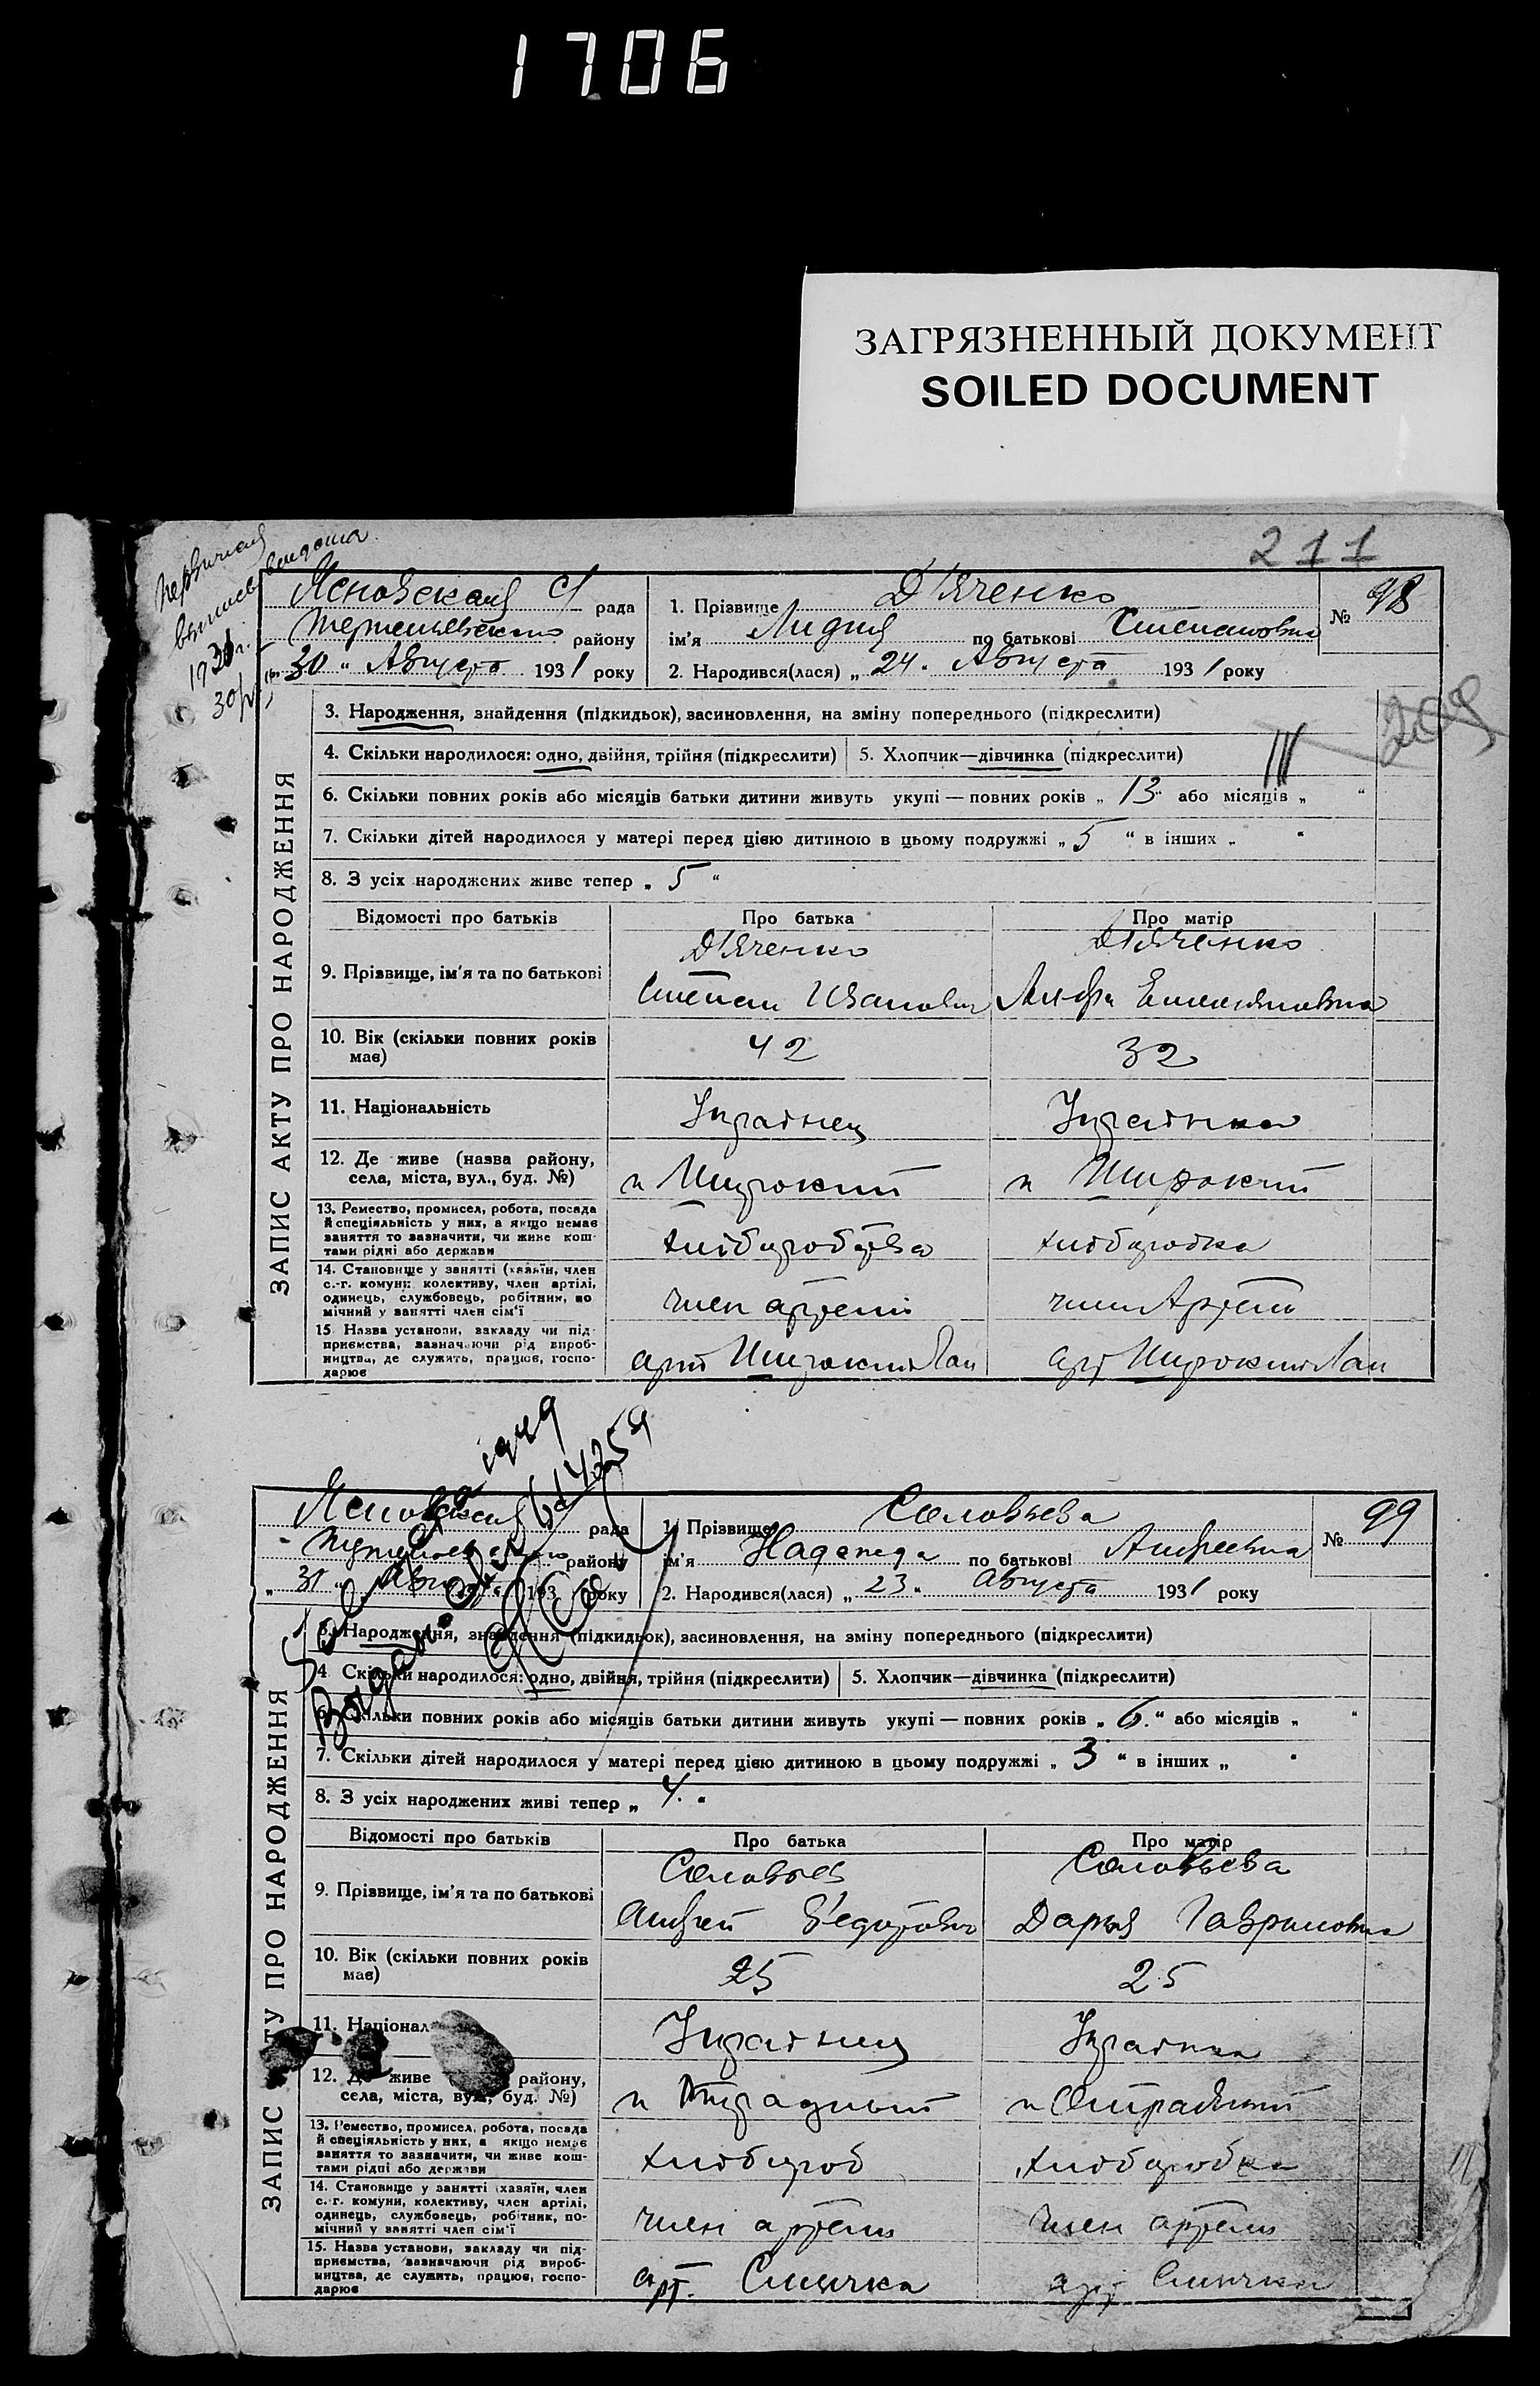 1706
ЗАГРЯЗНЕННЫЙ ДОКУМЕНТ
SOILED DOCUMENT
211
1931 г.
ЗАПИС АКТУ ПРО НАРОДЖЕННЯ
Ясновская с/ рада
району
„ 30 “ Августа 1931 року
1. Прізвище Д'яченко
ім'я Лидия по батькові Степановна
№ 98
2. Народився(лася) „ 24 “ Августа 1931 року
209
3. Народження, знайдення (підкидьок), засиновлення, на зміну попереднього (підкреслити)
4. Скільки народилося: одно, двійня, трійня (підкреслити) 5. Хлопчик—дівчинка (підкреслити)
6. Скільки повних років або місяців батьки дитини живуть укупі — повних років „ 13 “ або місяців „ “
7. Скільки дітей народилося у матері перед цією дитиною в цьому подружжі „ 5 “ в інших „ “
8. З усіх народжених живе тепер „ 5 “
Відомості про батьків Про батька Про матір
9. Прізвище, ім'я та по батькові
Д'яченко Д'яченко
Степан Иванович
10. Вік (скільки повних років має) 42 32
11. Національність Украінец Украінка
12. Де живе (назва району, села, міста, вул., буд. №) п Широкий п Широкий
13. Ремество, промисел, робота, посада й спеціяльність у них, а якщо немає заняття то зазначити, чи живе коштами рідні або держави хліборобка
14. Становище у занятті (хазяїн, член с.-г. комуни, колективу, член артілі, одинець, службовець, робітник, помічний у занятті член сім'ї член артели член Артели
15. Назва установи, закладу чи підприємства, зазначаючи рід виробництва, де служить, працює, господарює арт Широкий Лан арт Широкий Лан
ЗАПИС АКТУ ПРО НАРОДЖЕННЯ
Ясновская рада
району
„ 31 “ Августа 193 року
1. Прізвище Соловьева
ім'я Надежда по батькові Андреевна
№ 99
2. Народився(лася) „ 23 “ Августа 1931 року
3. Народження, знайдення (підкидьок), засиновлення, на зміну попереднього (підкреслити)
4. Скільки народилося: одно, двійня, трійня (підкреслити) 5. Хлопчик—дівчинка (підкреслити)
6. Скільки повних років або місяців батьки дитини живуть укупі — повних років „ 6. “ або місяців „ “
7. Скільки дітей народилося у матері перед цією дитиною в цьому подружжі „ 3 “ в інших „ “
8. З усіх народжених живі тепер „ 4. “
Відомості про батьків Про батька Про матір
9. Прізвище, ім'я та по батькові
Соловьев Соловьева
Андрей Федотович Дарья Гавриловна
10. Вік (скільки повних років має) 25 25
11. Націонал Украінец Украінка
12. Де живе району, села, міста, вул., буд. №) п Отрадный п Отрадный
13. Ремество, промисел, робота, посада й спеціяльність у них, а якщо немає заняття то зазначити, чи живе коштами рідні або держави хлібороб хліборобка
14. Становище у занятті (хазяїн, член с.-г. комуни, колективу, член артілі, одинець, службовець, робітник, помічний у занятті член сім'ї член артели член артели
15. Назва установи, закладу чи підприємства, зазначаючи рід виробництва, де служить, працює, господарює арт. Смычка арт Смычка